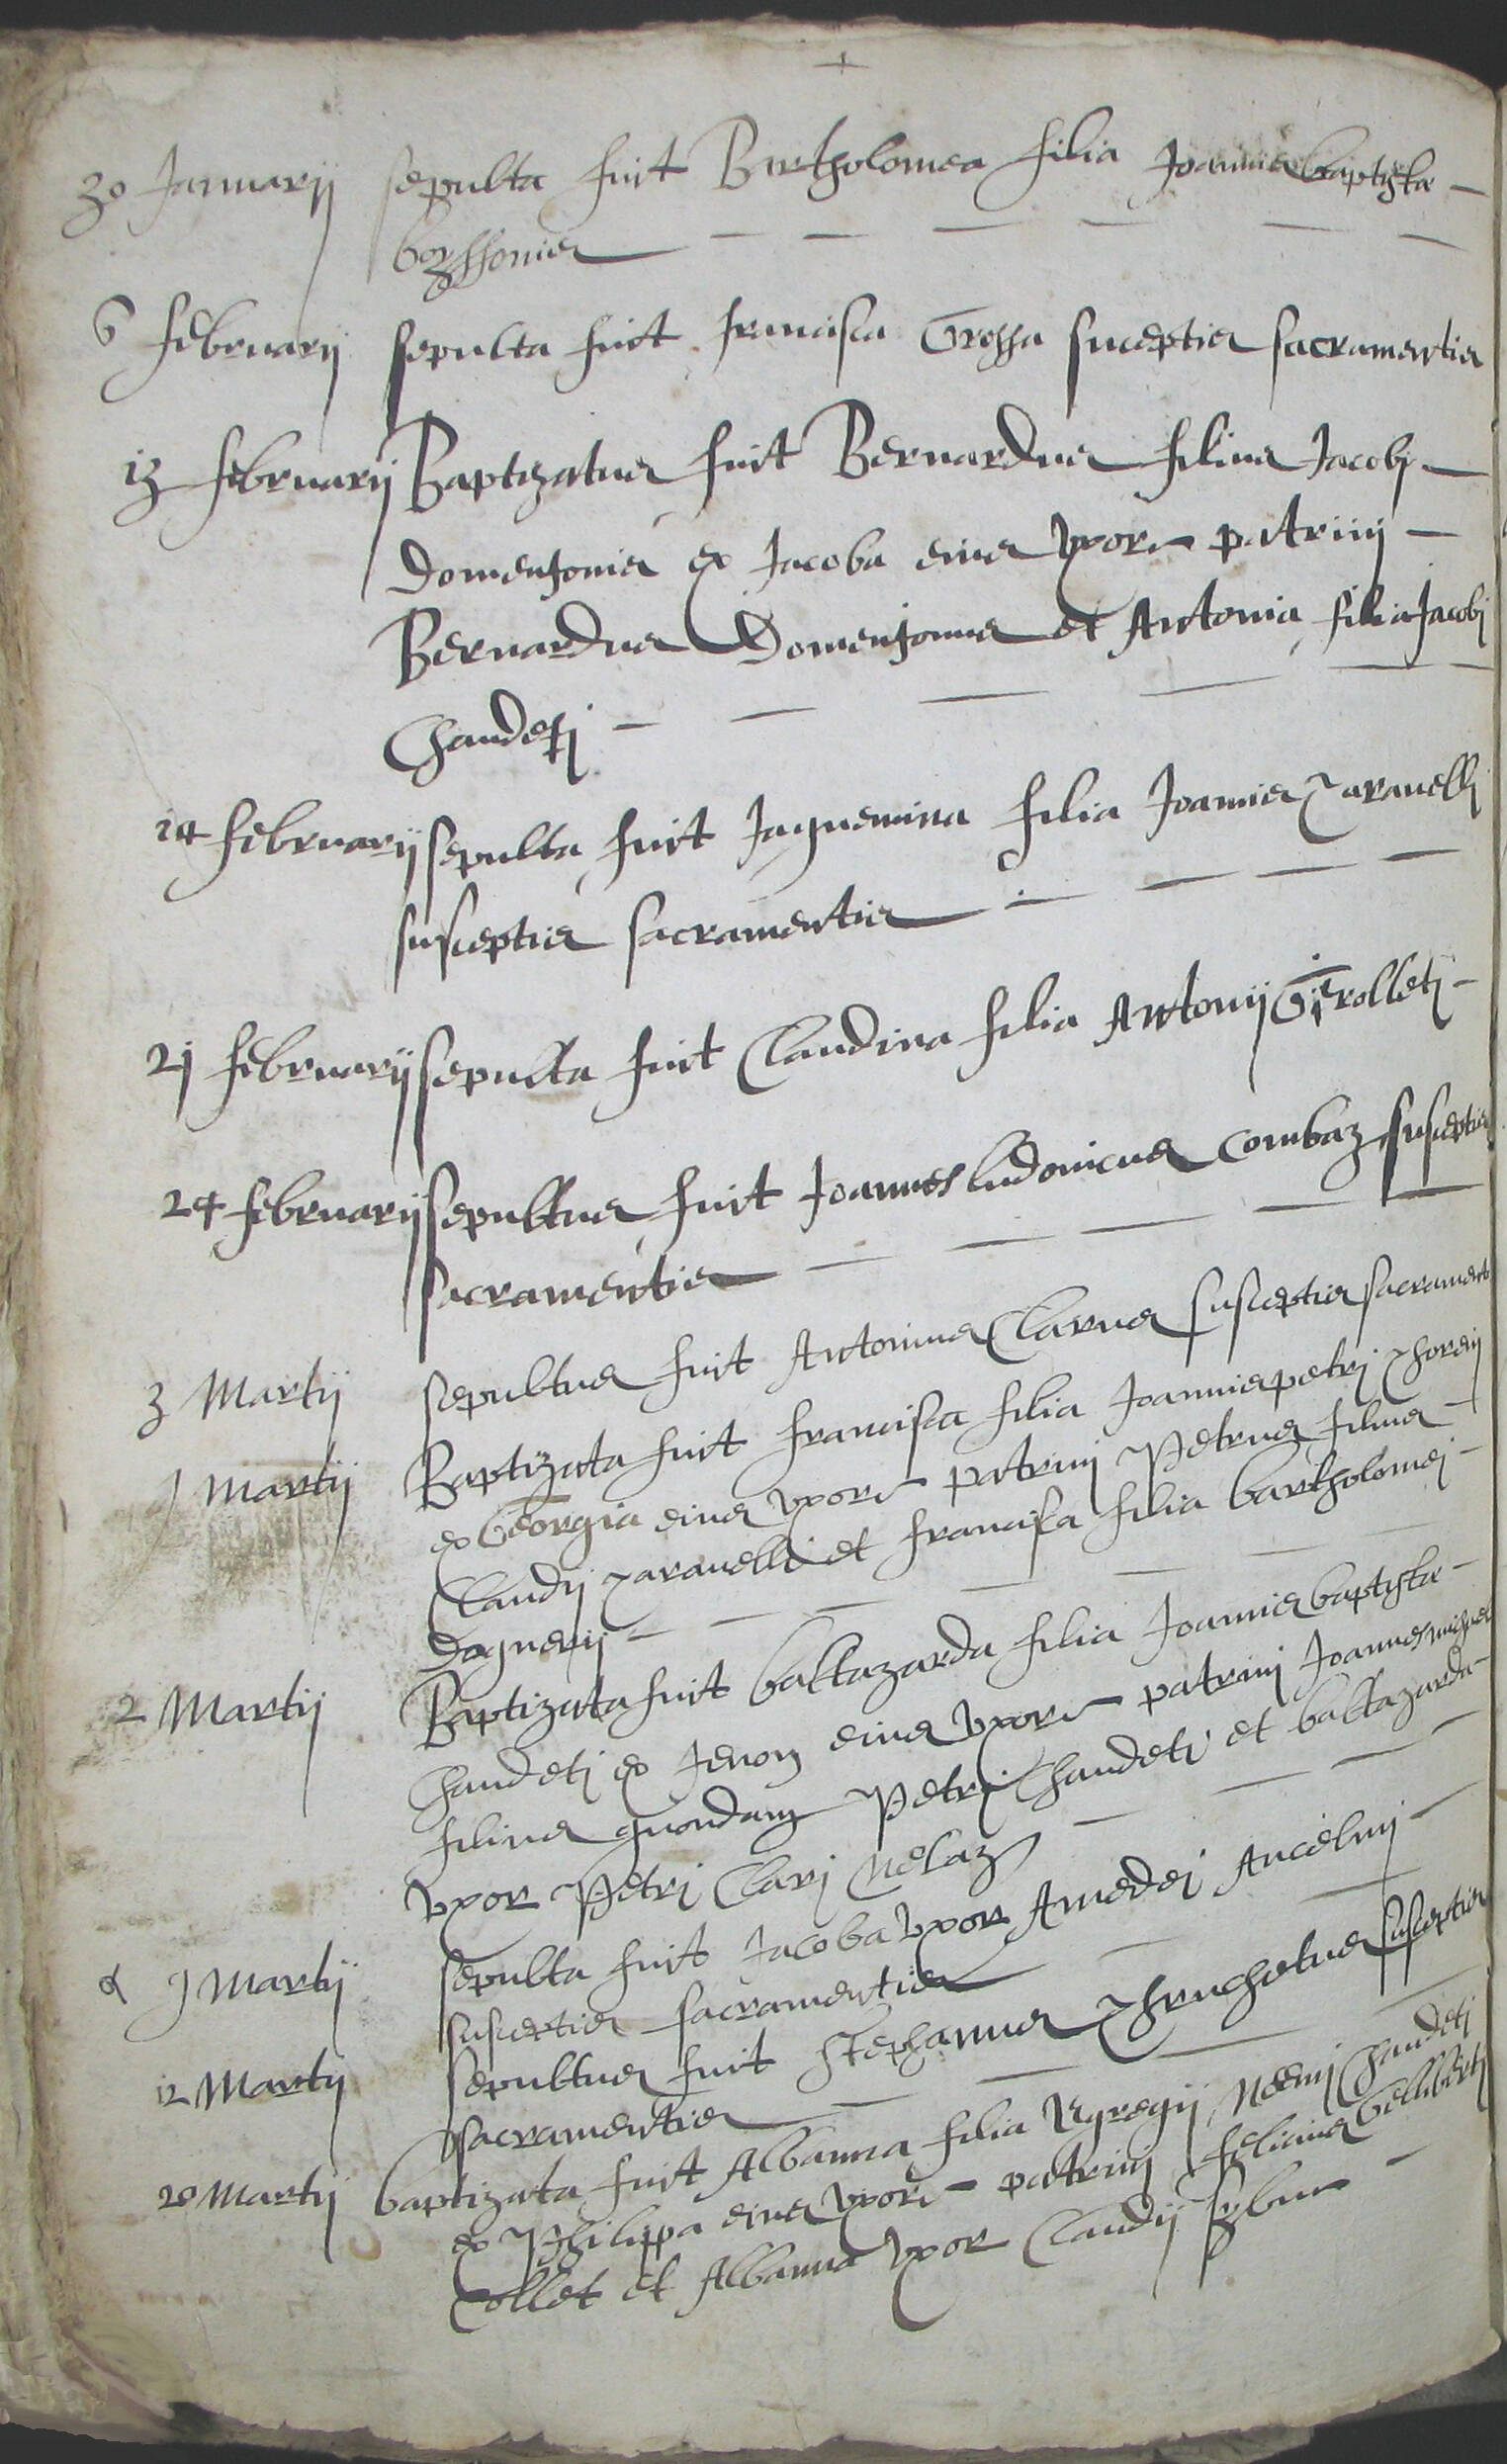 +
30 Januarij sepulta fuit Bartholomea filia Joannisbaptistæ
bozssonis
6 februarij sepulta fuit francisca Grossa suceptis sacramentis
13 februarij Baptizatus fuit Bernardus filius Jacobj
Domenjonis ex Jacoba eius uxore patrinj
Bernardus Domenjonus et Antonia filia Jacobj
Chandetj
14 februarij sepulta fuit Jaquemina filia Joannis Paravelli
susceptis sacramentis
21 februarij sepulta fuit Claudina filia Antonij Girolletj
24 februarij sepultus fuit Joannes ludovicus Combaz susceptis
sacramentis
3 Martij sepultus fuit Antonius Clarus susceptis sacramentis
J Martij Baptizata fuit francisca filia Joannispetrj
ex Georgia eius uxore patrinj Petrus filius
Claudij Paravelli et francisca filia bartholomej
Doqnerij
2 Martij Baptizata fuit baltazarda filia Joannisbaptistæ
Chandetj ex Jenon eius uxore patrinj Joannesmichael
filius quondam Petrj Chandetj et baltazarda
uxor Petrj Clarj Melaz
J Martij sepulta fuit Jacoba uxor Amedej Ancelmj
susceptis sacramentis
12 Martij sepultus fuit stephanus susceptis
sacramentis
20 Martij baptizata fuit Albanna filia Egregij Chandetj
ex Philippa eius uxore patrinj felicius Gellibertj
Collet et Albanna uxor Claudij